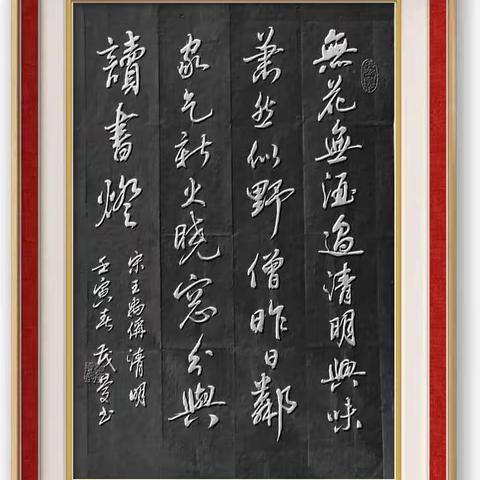 無花無酒過清明興味
蕭然似野僧昨日鄰
家乞新火曉窓分與
讀書燈
宋王禹偁清明
壬寅春茂书